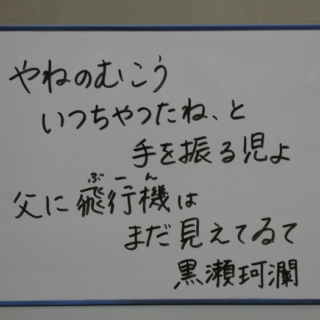 やねのむこう
いつちやつたね、と
手を振る児よ
ぶーん
父に飛行機は
まだ見えてるて
黒瀬珂瀾